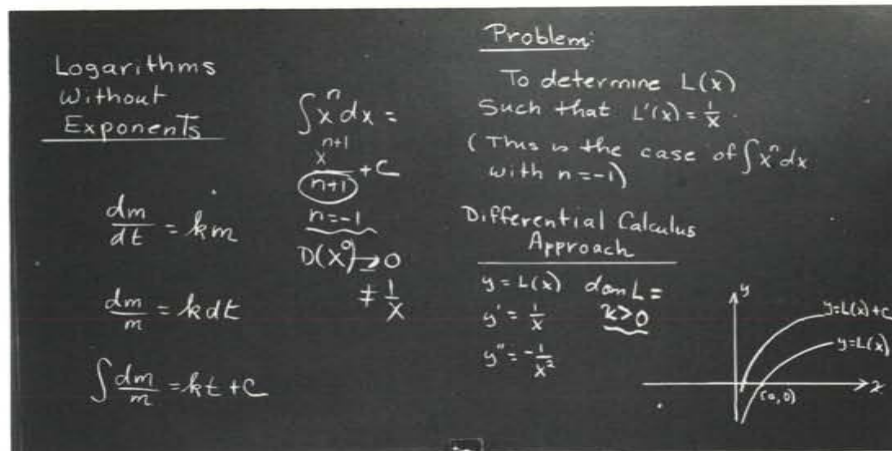 Logarithms
Without
Exponents
dm/dt = km
dm/m = k dt
∫ dm/m = kt + C
∫ xⁿ dx =
xⁿ⁺¹/(n+1) + C
n = -1
D(x⁰) → 0
≠ 1/x
Problem:
To determine L(x)
Such that L'(x) = 1/x
(This is the case of ∫ xⁿ dx
with n = -1)
Differential Calculus
Approach
y = L(x) dom L =
y' = 1/x x > 0
y'' = -1/x²
y
y = L(x) + C
y = L(x)
(a,0)
x